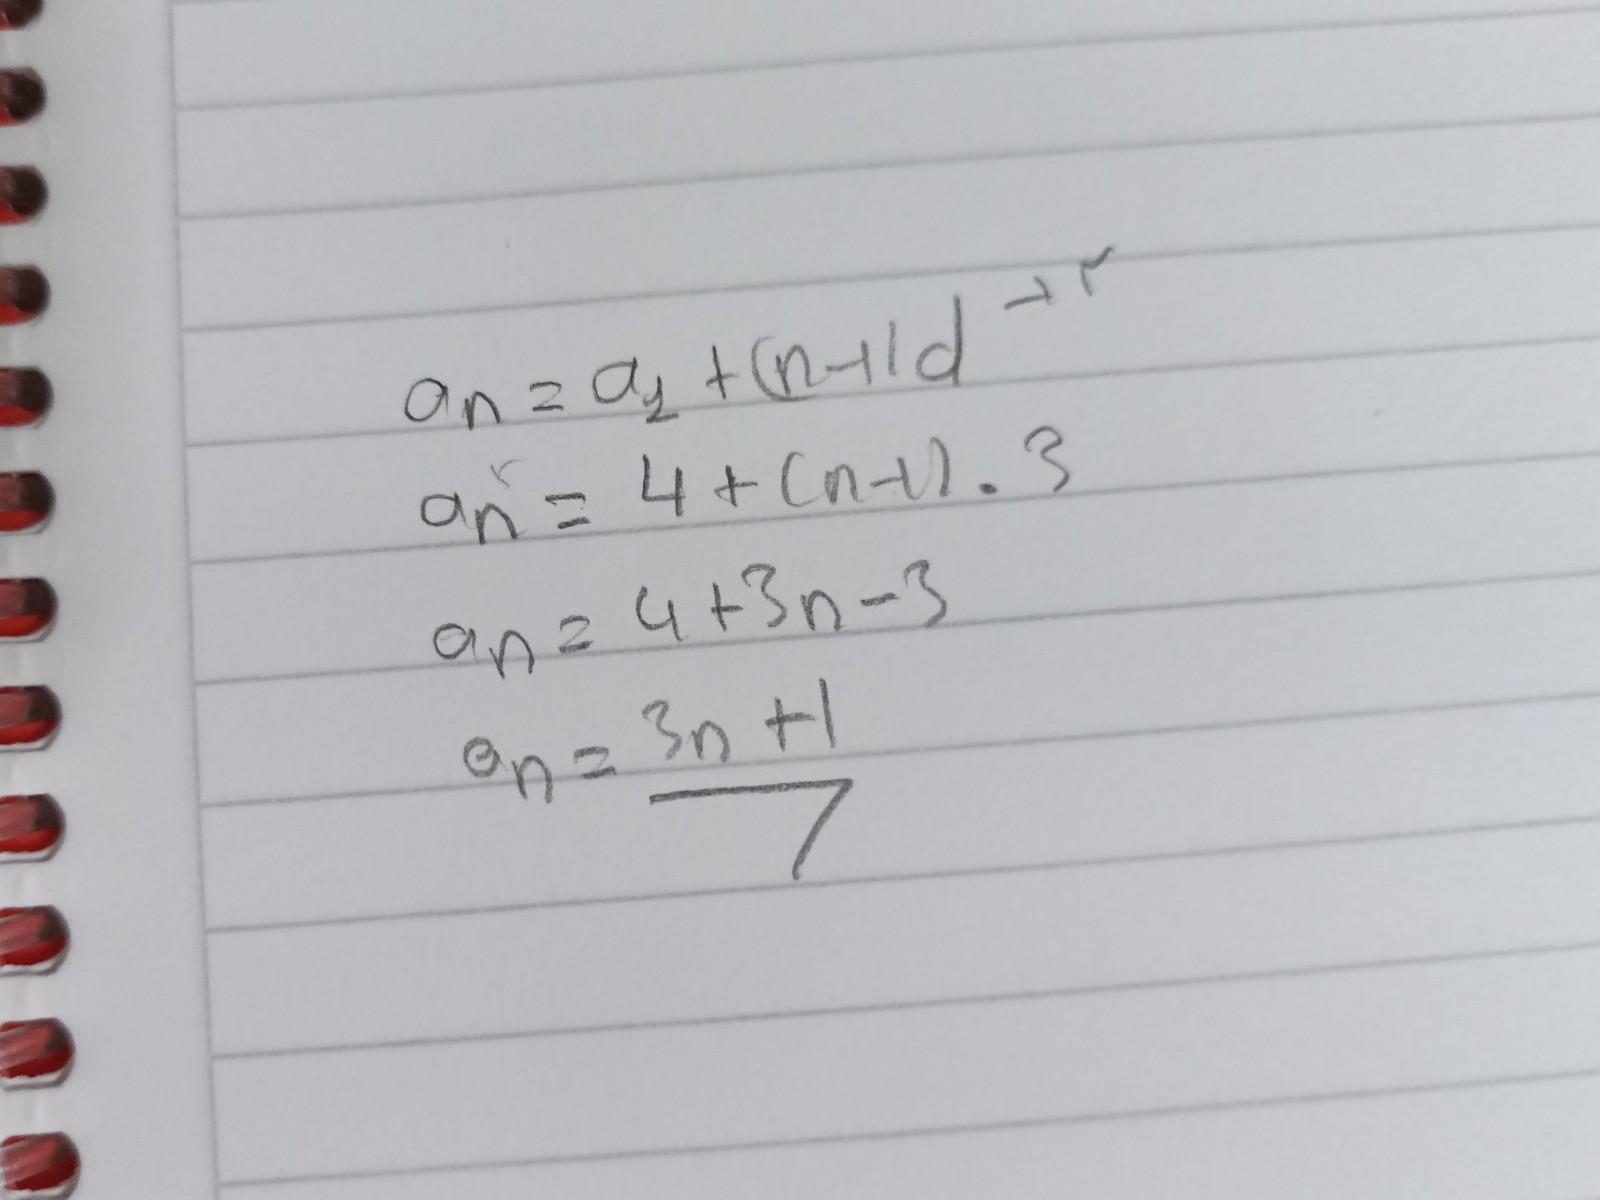 an = a1 + (n-1)d → r
an = 4 + (n-1) . 3
an = 4 + 3n - 3
an = 3n + 1